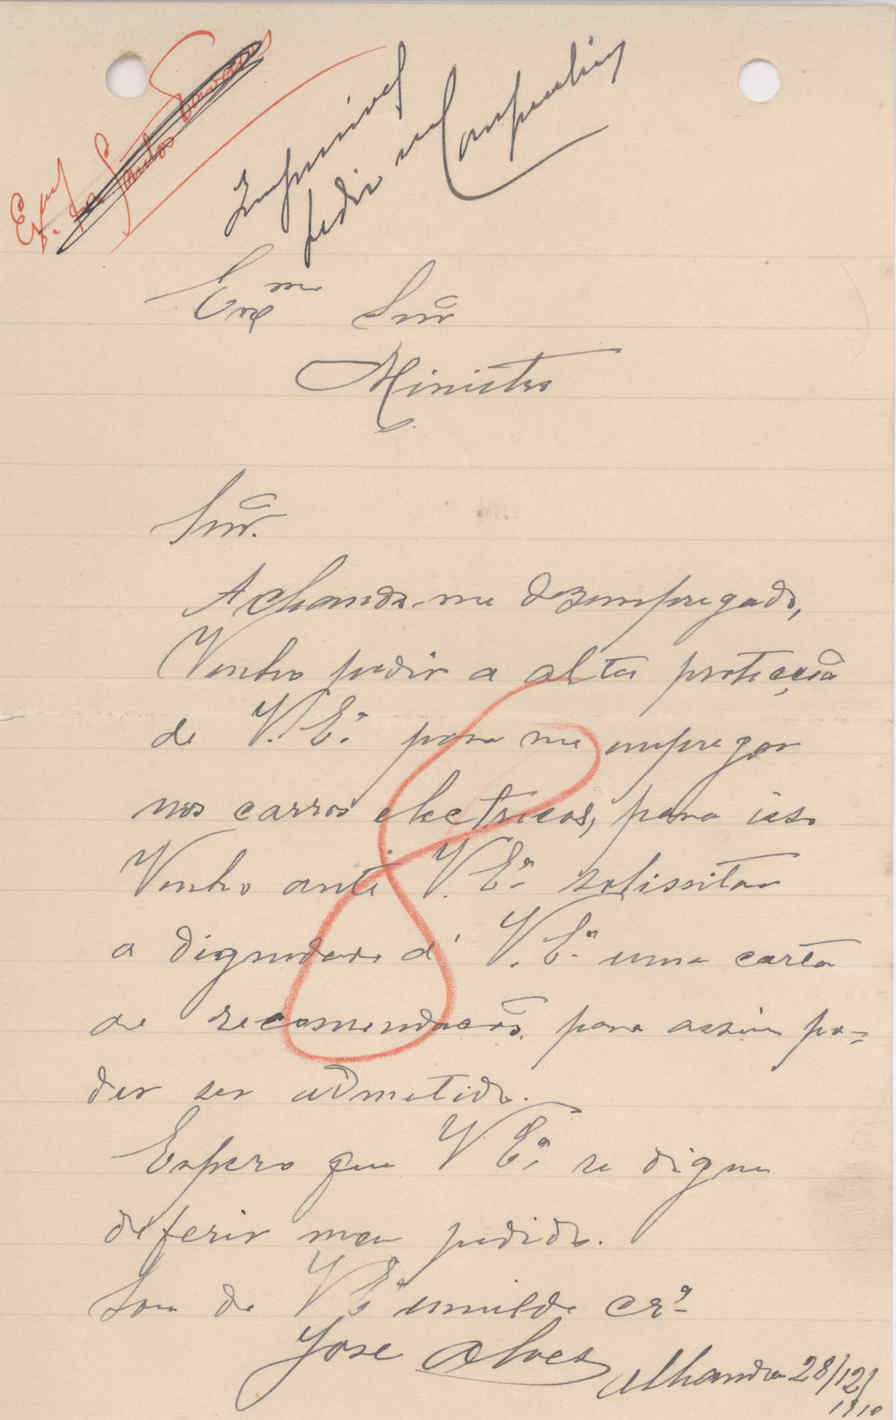 Impossivel
pedir na Companhia
Exmo Snr
Ministro
Snr.
Achando-me dezempregado,
Venho pedir a alta protecção
de V. Exª para me empregar
nos carros electricos, para isso
Venho ante V. Exª solissitar
a dignidade d' V. Exª uma carta
de recomendacão, para assim po=
der ser admetido.
Espero que V Exª se digne
deferir meu pedido.
Sou de V Exª umilde crº
Jose Alves Alhandra 28/12/
1910